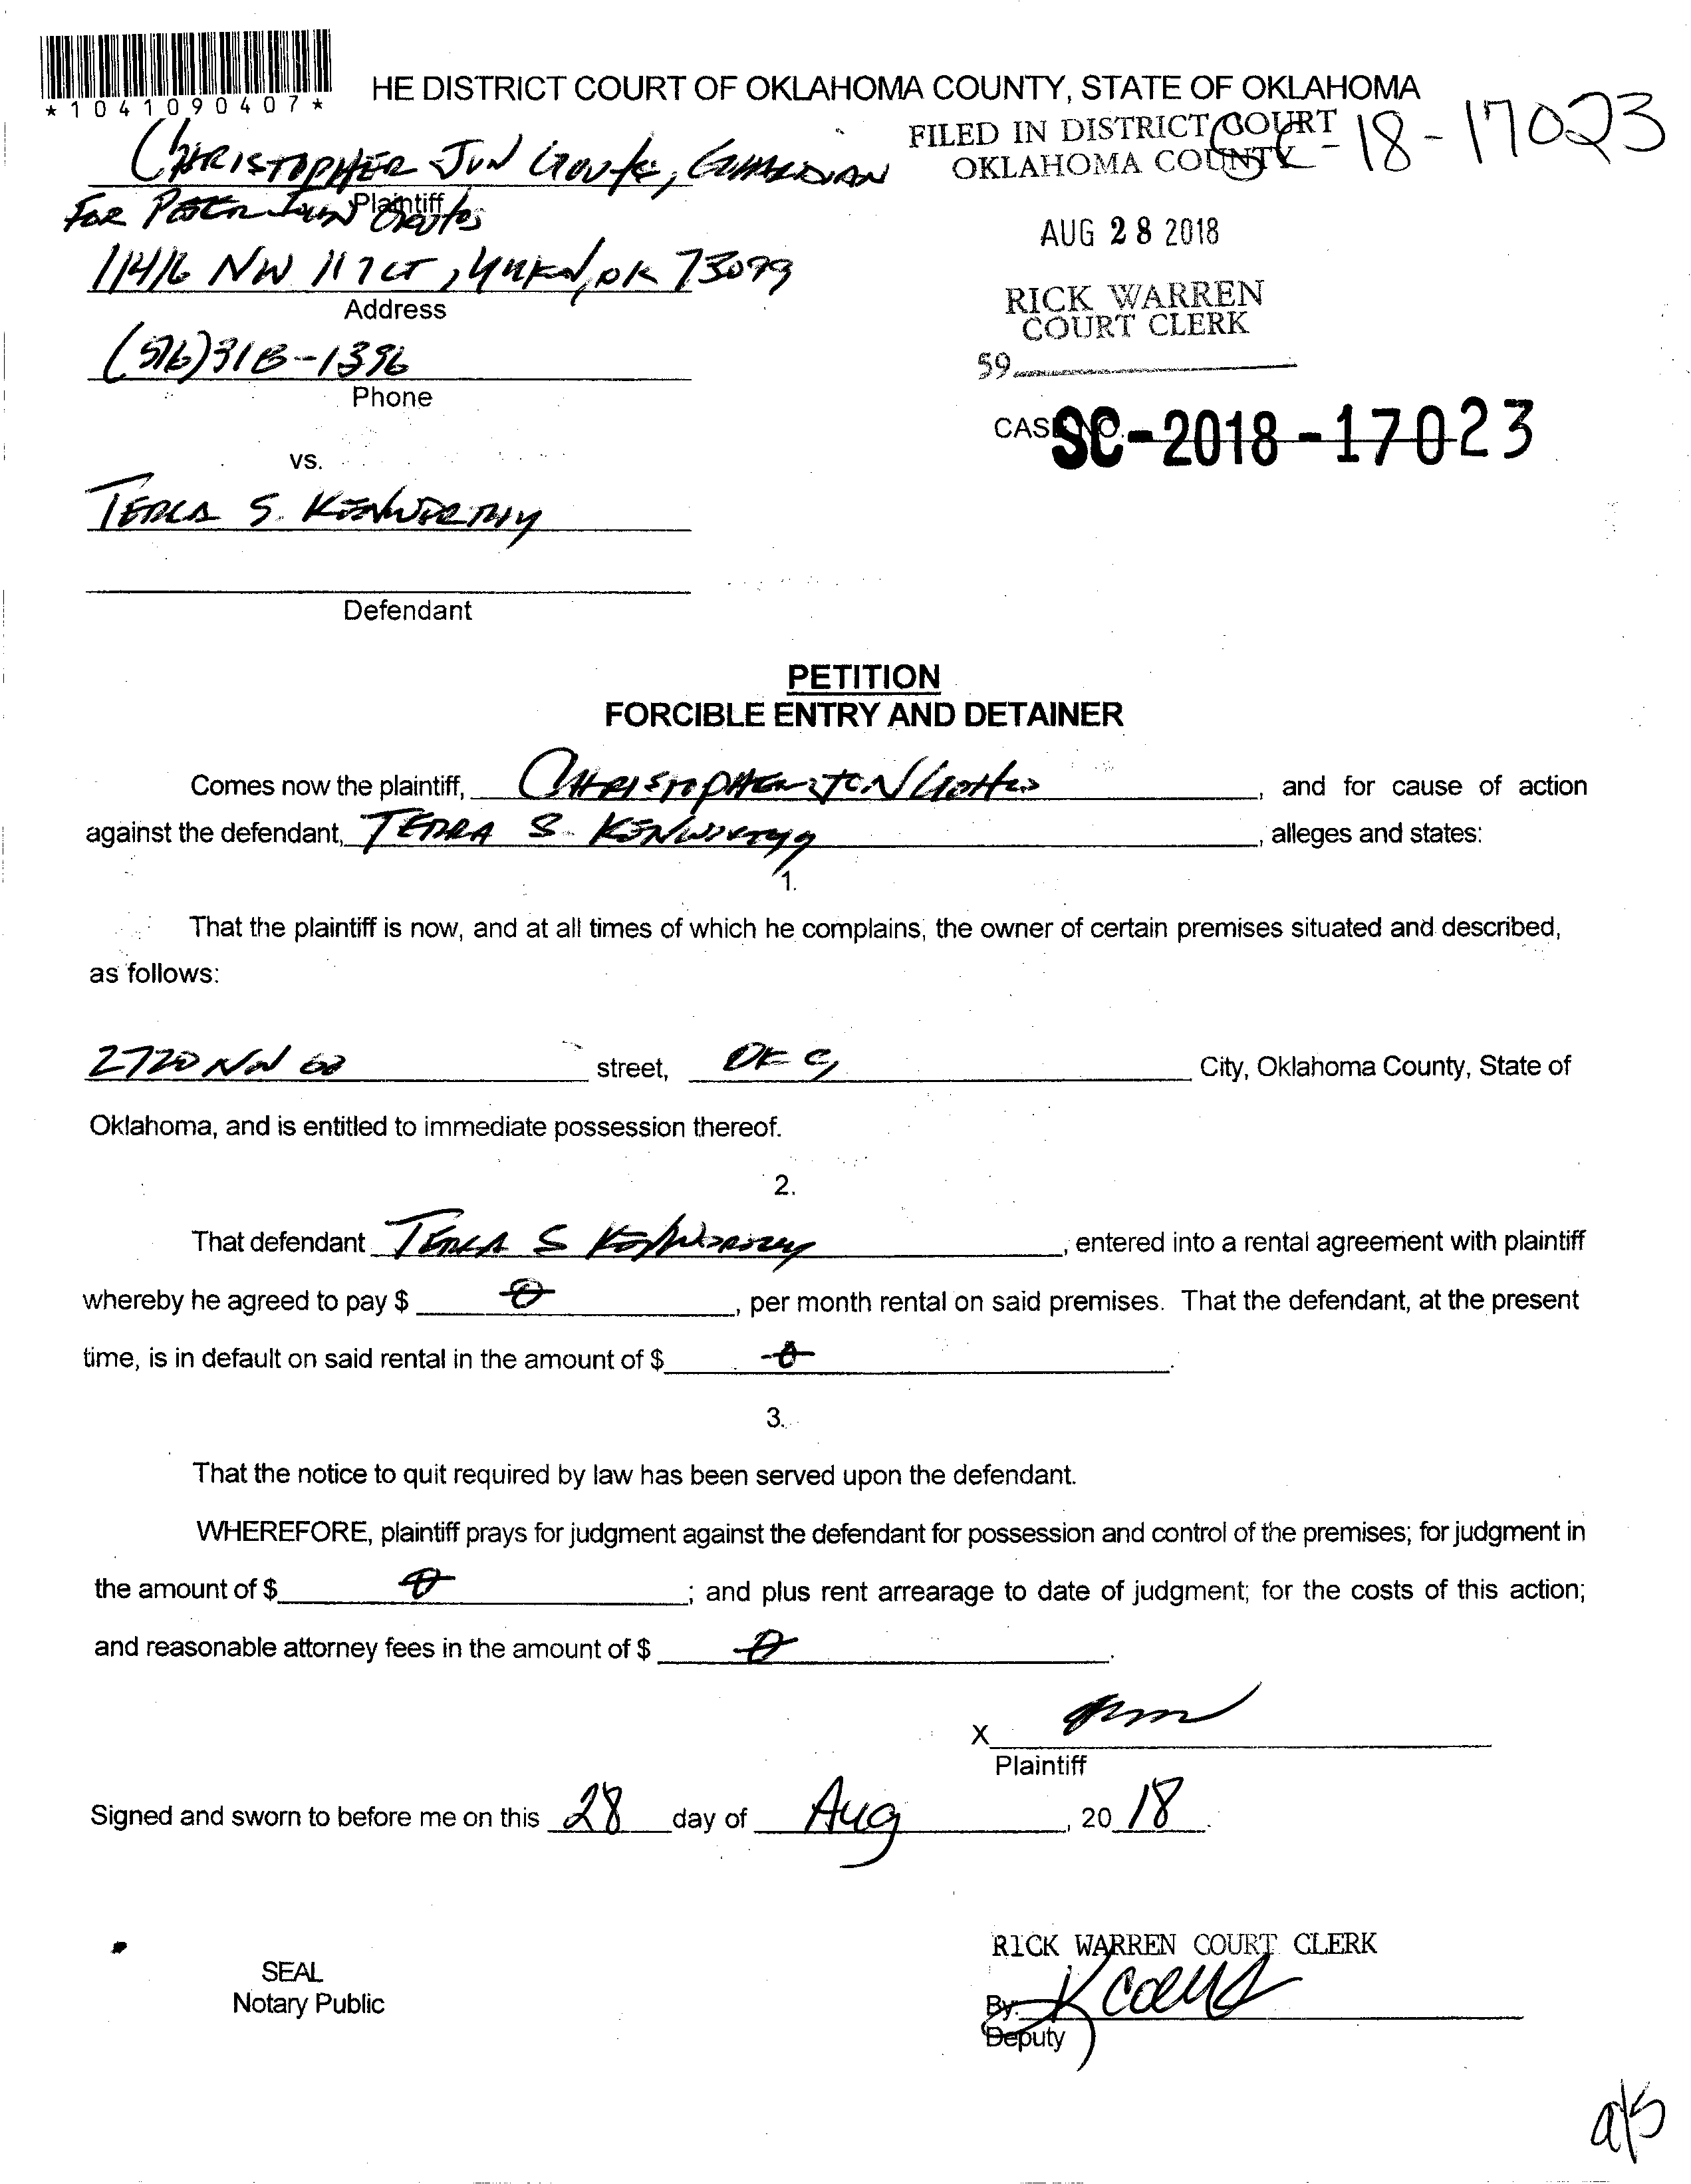 *1041090407*
HE DISTRICT COURT OF OKLAHOMA COUNTY, STATE OF OKLAHOMA
FILED IN DISTRICT COURT
OKLAHOMA COUNTY
SC-18-17023
CHRISTOPHER JON GUARDIAN
Plaintiff
FOR
AUG 28 2018
11416 NW 117 CT, YUKON, OK 73099
Address
RICK WARREN
COURT CLERK
59
Phone
CASE NO.
SC-2018-17023
vs.
TERRA S. KENWORTHY
Defendant
PETITION
FORCIBLE ENTRY AND DETAINER
Comes now the plaintiff, CHRISTOPHER JON , and for cause of action
against the defendant, TERRA S. KENWORTHY , alleges and states:
1.
That the plaintiff is now, and at all times of which he complains, the owner of certain premises situated and described,
as follows:
2720 NW 60 street, OKC, City, Oklahoma County, State of
Oklahoma, and is entitled to immediate possession thereof.
2.
That defendant TERRA S KENWORTHY , entered into a rental agreement with plaintiff
whereby he agreed to pay $ 0 , per month rental on said premises. That the defendant, at the present
time, is in default on said rental in the amount of $ 0 .
3.
That the notice to quit required by law has been served upon the defendant.
WHEREFORE, plaintiff prays for judgment against the defendant for possession and control of the premises; for judgment in
the amount of $ 0 ; and plus rent arrearage to date of judgment; for the costs of this action;
and reasonable attorney fees in the amount of $ 0 .
X
Plaintiff
Signed and sworn to before me on this 28 day of Aug , 20 18 .
SEAL
Notary Public
RICK WARREN COURT CLERK
By:
Deputy